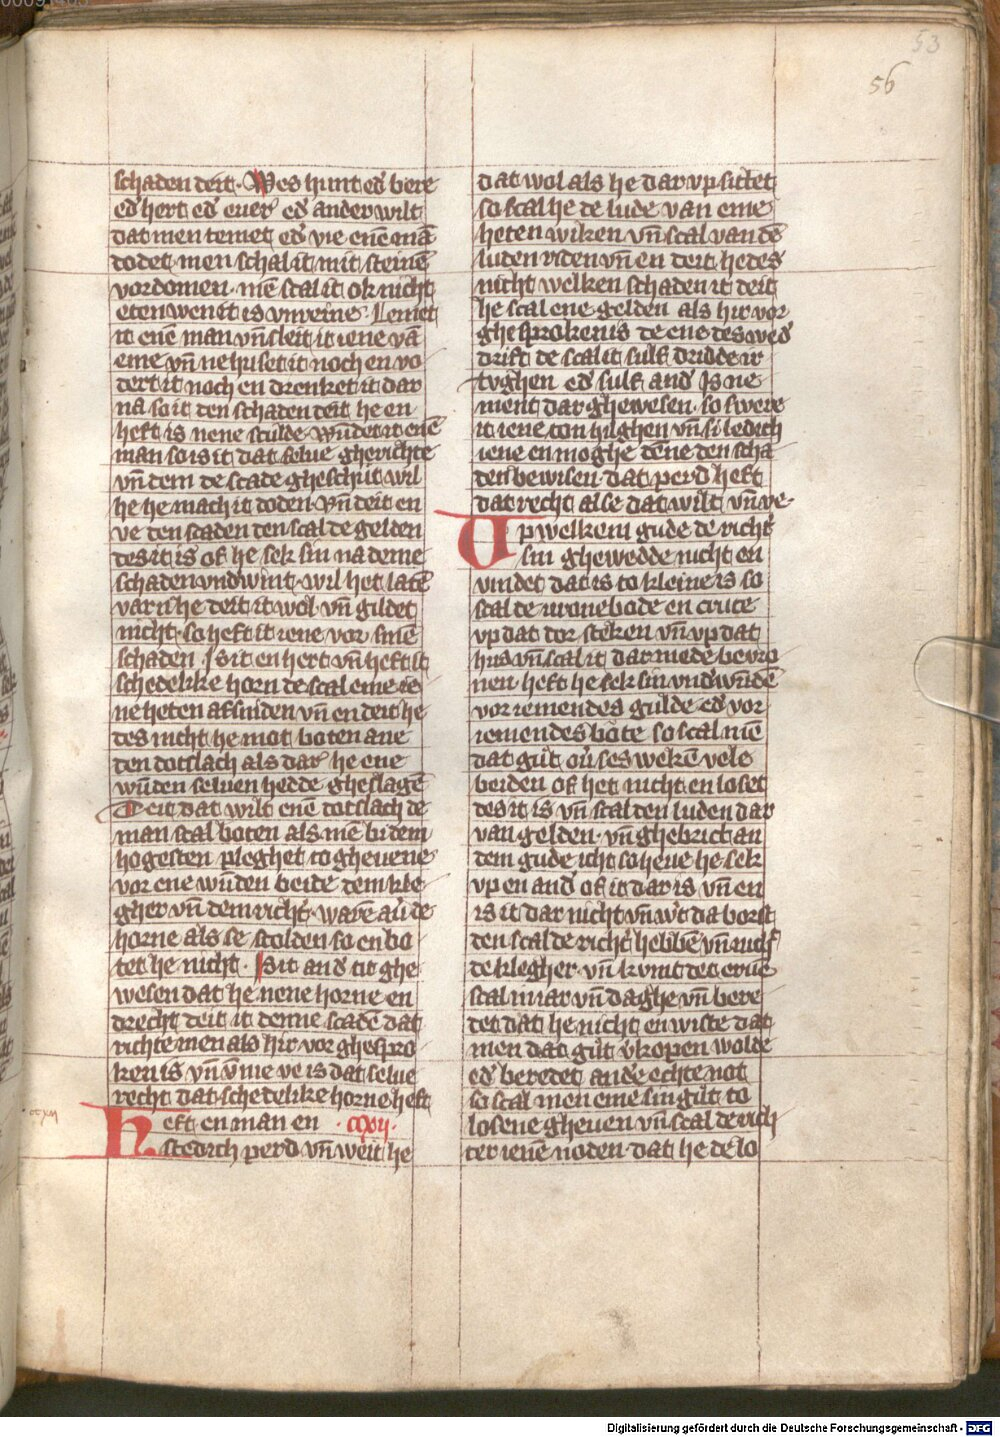 53
56
schaden deit. Wes hunt ed' bere
ed' hert ed' euer' ed' ander wilt
dat men temet ed' vie enē mā
dodet men schal it mit steinē
vordomen. mē scal it ok nicht
eten wen it is vnreine. Lemet
it enē man vn̄ sleit it iene vā
eme vn̄ ne huset it noch en vo
dert it noch en drenket it dar
na so it den schaden deit he en
heft is nene sculde. wūdet it enē
man so is it dat selue gherichte
vn̄ dem de scade gheschut wil
he he mach it doden. vn̄ deit en
ve den scaden den scal de gelden
des it is of he sek sin na deme
schaden vndwint. wil he t latē
varn he deit it wol. vn̄ gildet
nicht. so heft it iene vor sinē
schaden. Js it en hert vn̄ heft it
schedelike horn de scal eme ie
ne heten afsniden vn̄ en deit he
des nicht he mot boten ane
den dotslach als dar' he ene
wūden seluen hedde gheslagē
Deit dat wilt enē dotslach de
man scal boten als mē bi dem
hogesten pleghet to gheuene
vor ene wūden beide dem kle
gher vn̄ dem richt'. warē au' de
horne als se scolden so en bo
tet he nicht. Js it and' tit ghe
wesen dat he nene horne en
drecht deit it denne scadē dat
richte men als hir vor ghespro
ken is vn̄ vme ve is dat selue
recht dat schedelike horne heft
ccxii
Heft en man en . ccxii.
stedich perd vn̄ weit he
dat wol als he dar vp sittet
so scal he de lude van eme
heten wiken vn̄ scal van dē
luden riden vn̄ en deit he des
nicht welken schaden it deit
he scal ene gelden als hir vor
ghesproken is de ene des wed'
drift de scal it sulf dridde ir
tvghen ed' sulf and' Js ne
ment dar ghewesen. so swere
it iene ton hilghen vn̄ si ledich
iene en moghe denne den scha
den bewisen. dat perd heft
dat recht alse dat wilt vn̄ ve.
Vp welkem gude de richt'
sin ghewedde nicht en
vindet dat is to kleine is so
scal de vronebode en cruce
vp dat dor steken vn̄ vp dat
hus vn̄ scal it dar mede bevro
nen. heft he sek sin vndwūdē
vor iemendes gulde ed' vor
iemendes bote so scal mē
dat gůt ou' ses wekē vele
beiden of het nicht en loset
des it is vn̄ scal den luden dar
van gelden. vn̄ ghebricht an
dem gude icht so heue he sek
vp en and' of it dar is vn̄ en
is it dar nicht vn̄ w't da borst
den scal de richt' hebbē vn̄ nicht
de klegher. vn̄ kvmt des erue
scal in iar vn̄ daghe vn̄ bere
det dat he nicht en wiste dat
men dat gůt v'kopen wolde
ed' beredet ande echte not
so scal men eme sin gůt to
losene gheuen vn̄ scal de rich
ter ienē noden. dat he de lo
Digitalisierung gefördert durch die Deutsche Forschungsgemeinschaft - DFG